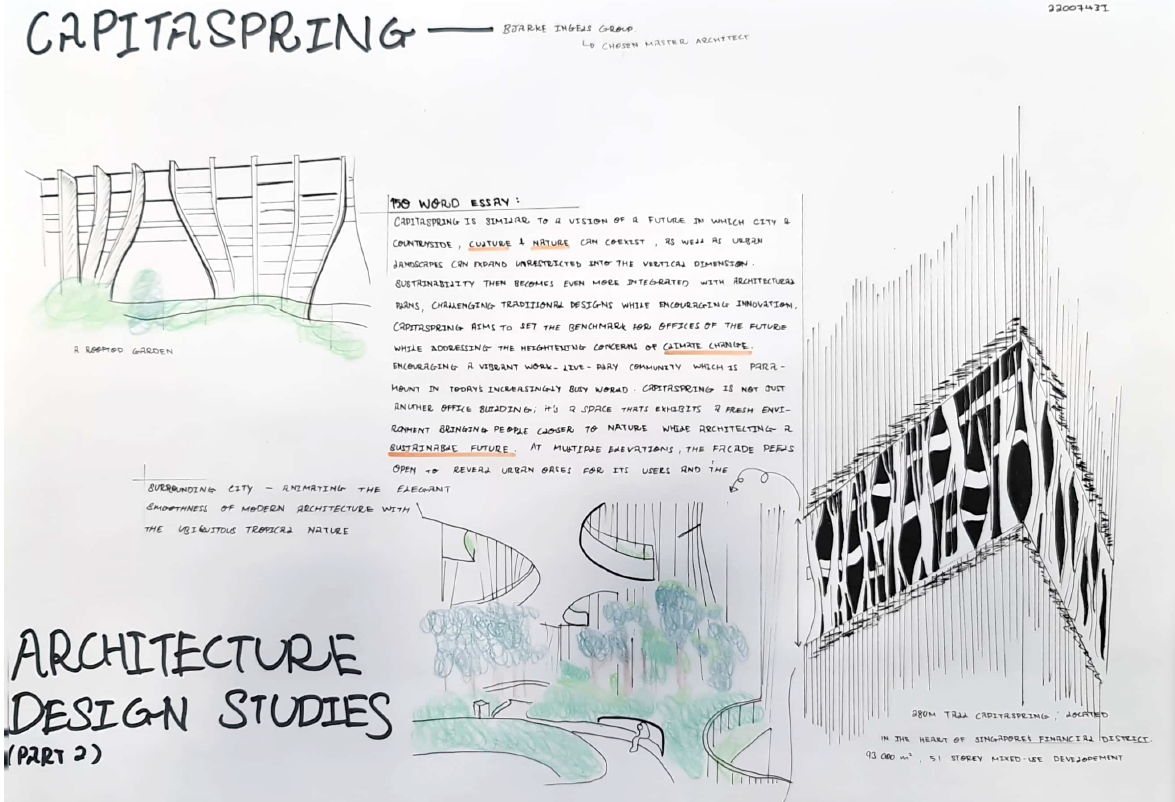 CAPITASPRING — BJARKE INGELS GROUP.
↳ CHOSEN MASTER ARCHITECT
22007431
150 WORD ESSAY :
CAPITASPRING IS SIMILAR TO A VISION OF A FUTURE IN WHICH CITY &
COUNTRYSIDE , CULTURE & NATURE CAN COEXIST , AS WELL AS URBAN
LANDSCAPES CAN EXPAND UNRESTRICTED INTO THE VERTICAL DIMENSION.
SUSTAINABILITY THEN BECOMES EVEN MORE INTEGRATED WITH ARCHITECTURAL
PLANS, CHALLENGING TRADITIONAL DESIGNS WHILE ENCOURAGING INNOVATION.
CAPITASPRING AIMS TO SET THE BENCHMARK FOR OFFICES OF THE FUTURE
WHILE ADDRESSING THE HEIGHTENING CONCERNS OF CLIMATE CHANGE.
ENCOURAGING A VIBRANT WORK-LIVE-PLAY COMMUNITY WHICH IS PARA-
MOUNT IN TODAY'S INCREASINGLY BUSY WORLD. CAPITASPRING IS NOT JUST
ANOTHER OFFICE BUILDING; IT'S A SPACE THATS EXHIBITS A FRESH ENVI-
RONMENT BRINGING PEOPLE CLOSER TO NATURE WHILE ARCHITECTING A
SUSTAINABLE FUTURE. AT MULTIPLE ELEVATIONS, THE FACADE PEELS
OPEN TO REVEAL URBAN OASES FOR ITS USERS AND THE
SURROUNDING CITY – ANIMATING THE ELEGANT
SMOOTHNESS OF MODERN ARCHITECTURE WITH
THE UBIQUITOUS TROPICAL NATURE
A ROOFTOP GARDEN
ARCHITECTURE
DESIGN STUDIES
(PART 2)
280M TALL CAPITASPRING , LOCATED
IN THE HEART OF SINGAPORES FINANCIAL DISTRICT.
93 000 m², 51 STOREY MIXED-USE DEVELOPEMENT